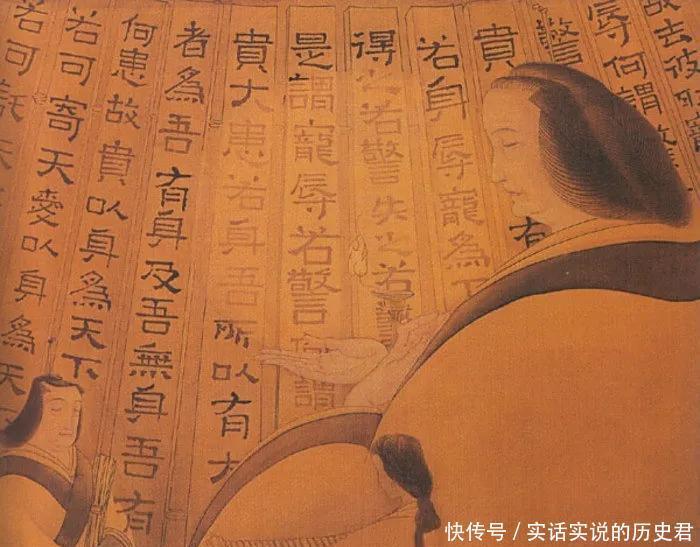 故去彼
辱何謂
警
有
貴
若身辱寵爲下
得之若警失之若警
是謂寵辱若警何謂
貴大患若身吾所以有大
者爲吾有身及吾無身吾有
何患故貴以身爲天下
若可寄天愛以身爲天下
若可託天
快传号 / 实话实说的历史君